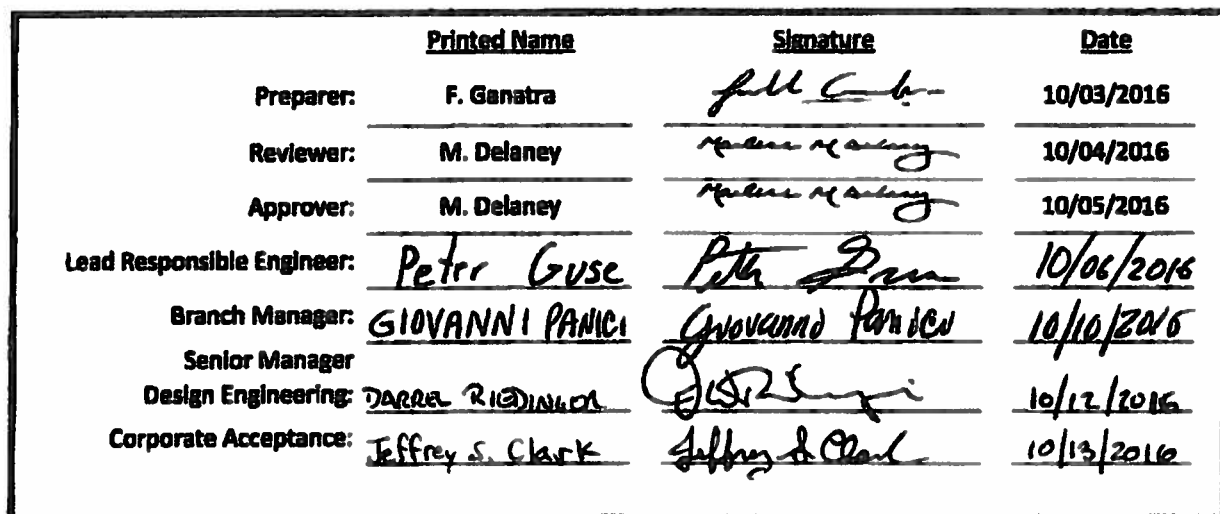 Printed Name Signature Date
Preparer: F. Ganatra 10/03/2016
Reviewer: M. Delaney 10/04/2016
Approver: M. Delaney 10/05/2016
Lead Responsible Engineer: Peter Guse Peter 10/06/2016
Branch Manager: GIOVANNI PANICI Giovanni Panici 10/10/2016
Senior Manager
Design Engineering: DARREL RIEDINGER 10/12/2016
Corporate Acceptance: Jeffrey S. Clark Jeffrey S Clark 10/13/2016